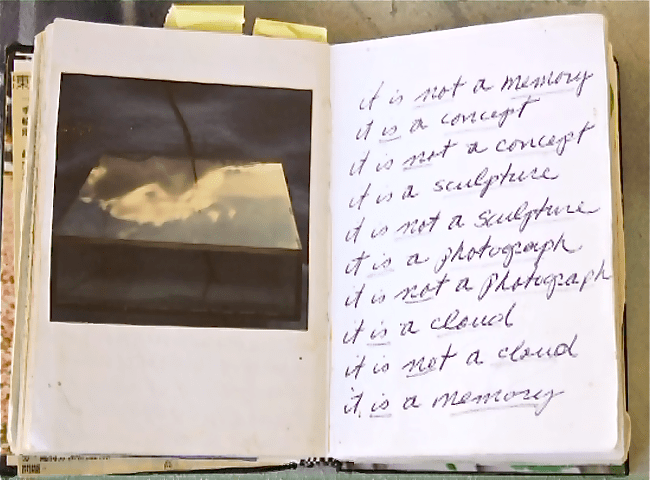 it is not a memory
it is a concept
it is not a concept
it is a sculpture
it is not a sculpture
it is a photograph
it is not a photograph
it is a cloud
it is not a cloud
it is a memory
東